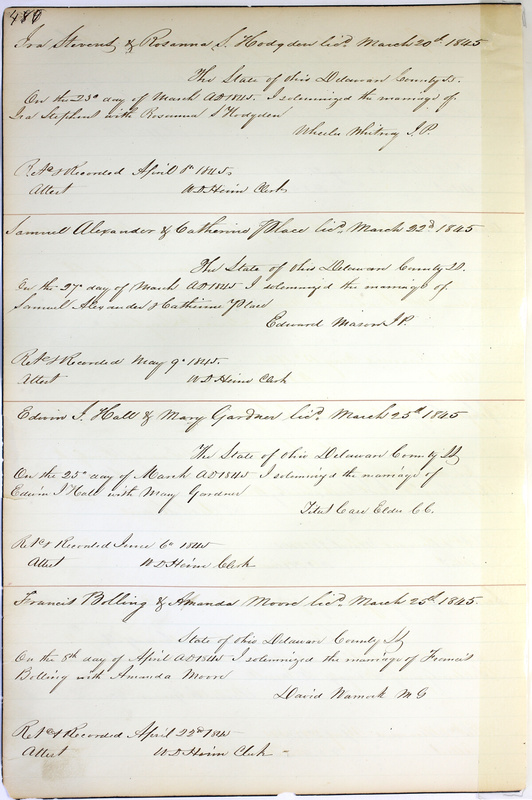 480
Ira Stevens & Rosanna S. Hodgden licd. March 20th 1845
The State of Ohio Delaware County SS.
On the 23d day of March AD 1845. I solemnized the marriage of
Ira Stephens with Rosanna S Hodgden
Wheeler Whitney J.P.
Retd & Recorded April 8th 1845.
Attest W.D. Heim Clerk
Samuel Alexander & Catherine Place licd. March 22d 1845
The State of Ohio Delaware County SS.
On the 27th day of March AD 1845 I solemnized the marriage of
Samuel Alexander & Catherine Place
Edward Mason J.P.
Retd & Recorded May 9th 1845.
Attest W.D. Heim Clerk
Edwin J. Hall & Mary Gardner licd. March 25th 1845
The State of Ohio Delaware County SS
On the 25th day of March AD 1845 I solemnized the marriage of
Edwin J Hall with Mary Gardner
Case Elder CC.
Retd & Recorded June 6th 1845
Attest W.D. Heim Clerk
Francis Bolling & Amanda Moore licd. March 25th 1845.
State of Ohio Delaware County SS
On the 8th day of April AD 1845 I solemnized the marriage of Francis
Bolling with Amanda Moore
David Warnock M G
Retd & Recorded April 22d 1845
Attest W.D. Heim Clerk -